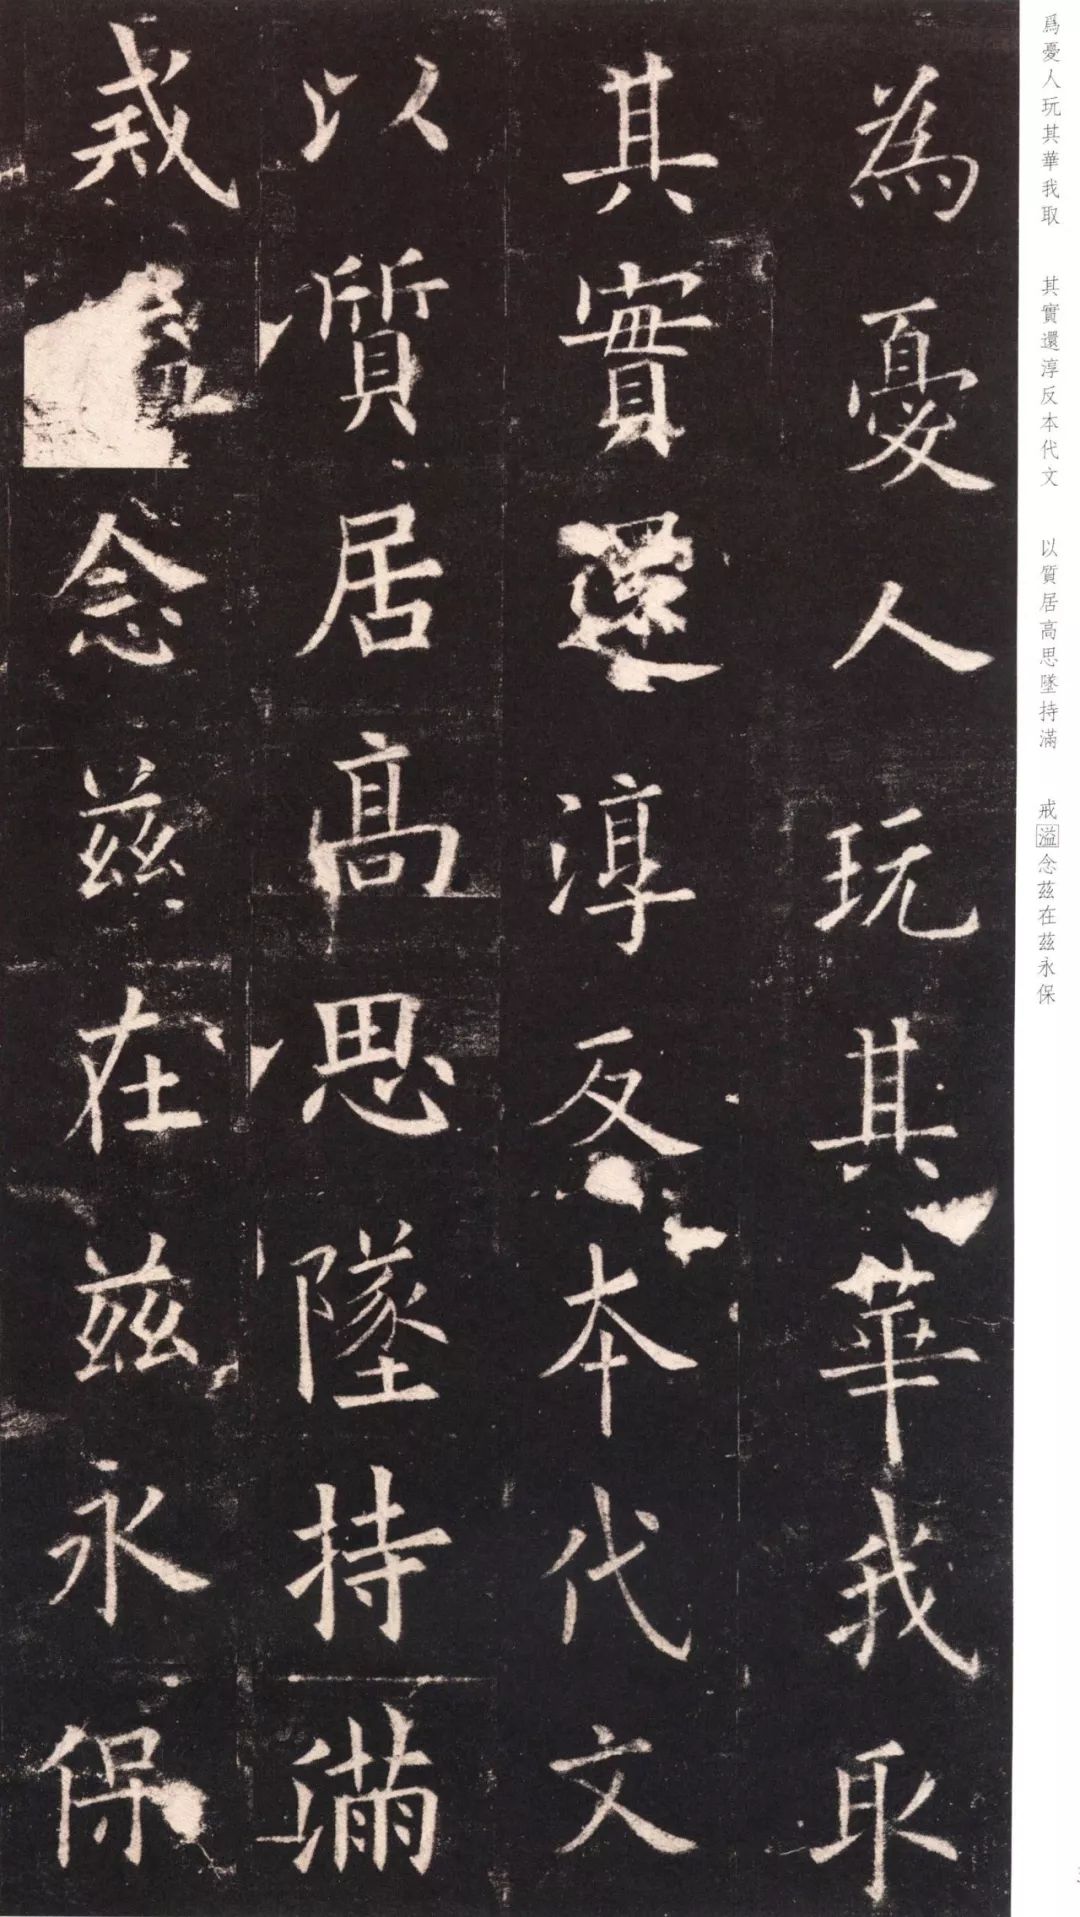 為憂人玩其華我取
其實還淳反本代文
以質居高思墜持滿
戒念茲在茲永保
爲憂人玩其華我取
其實還淳反本代文
以質居高思墜持滿
戒溢念茲在茲永保